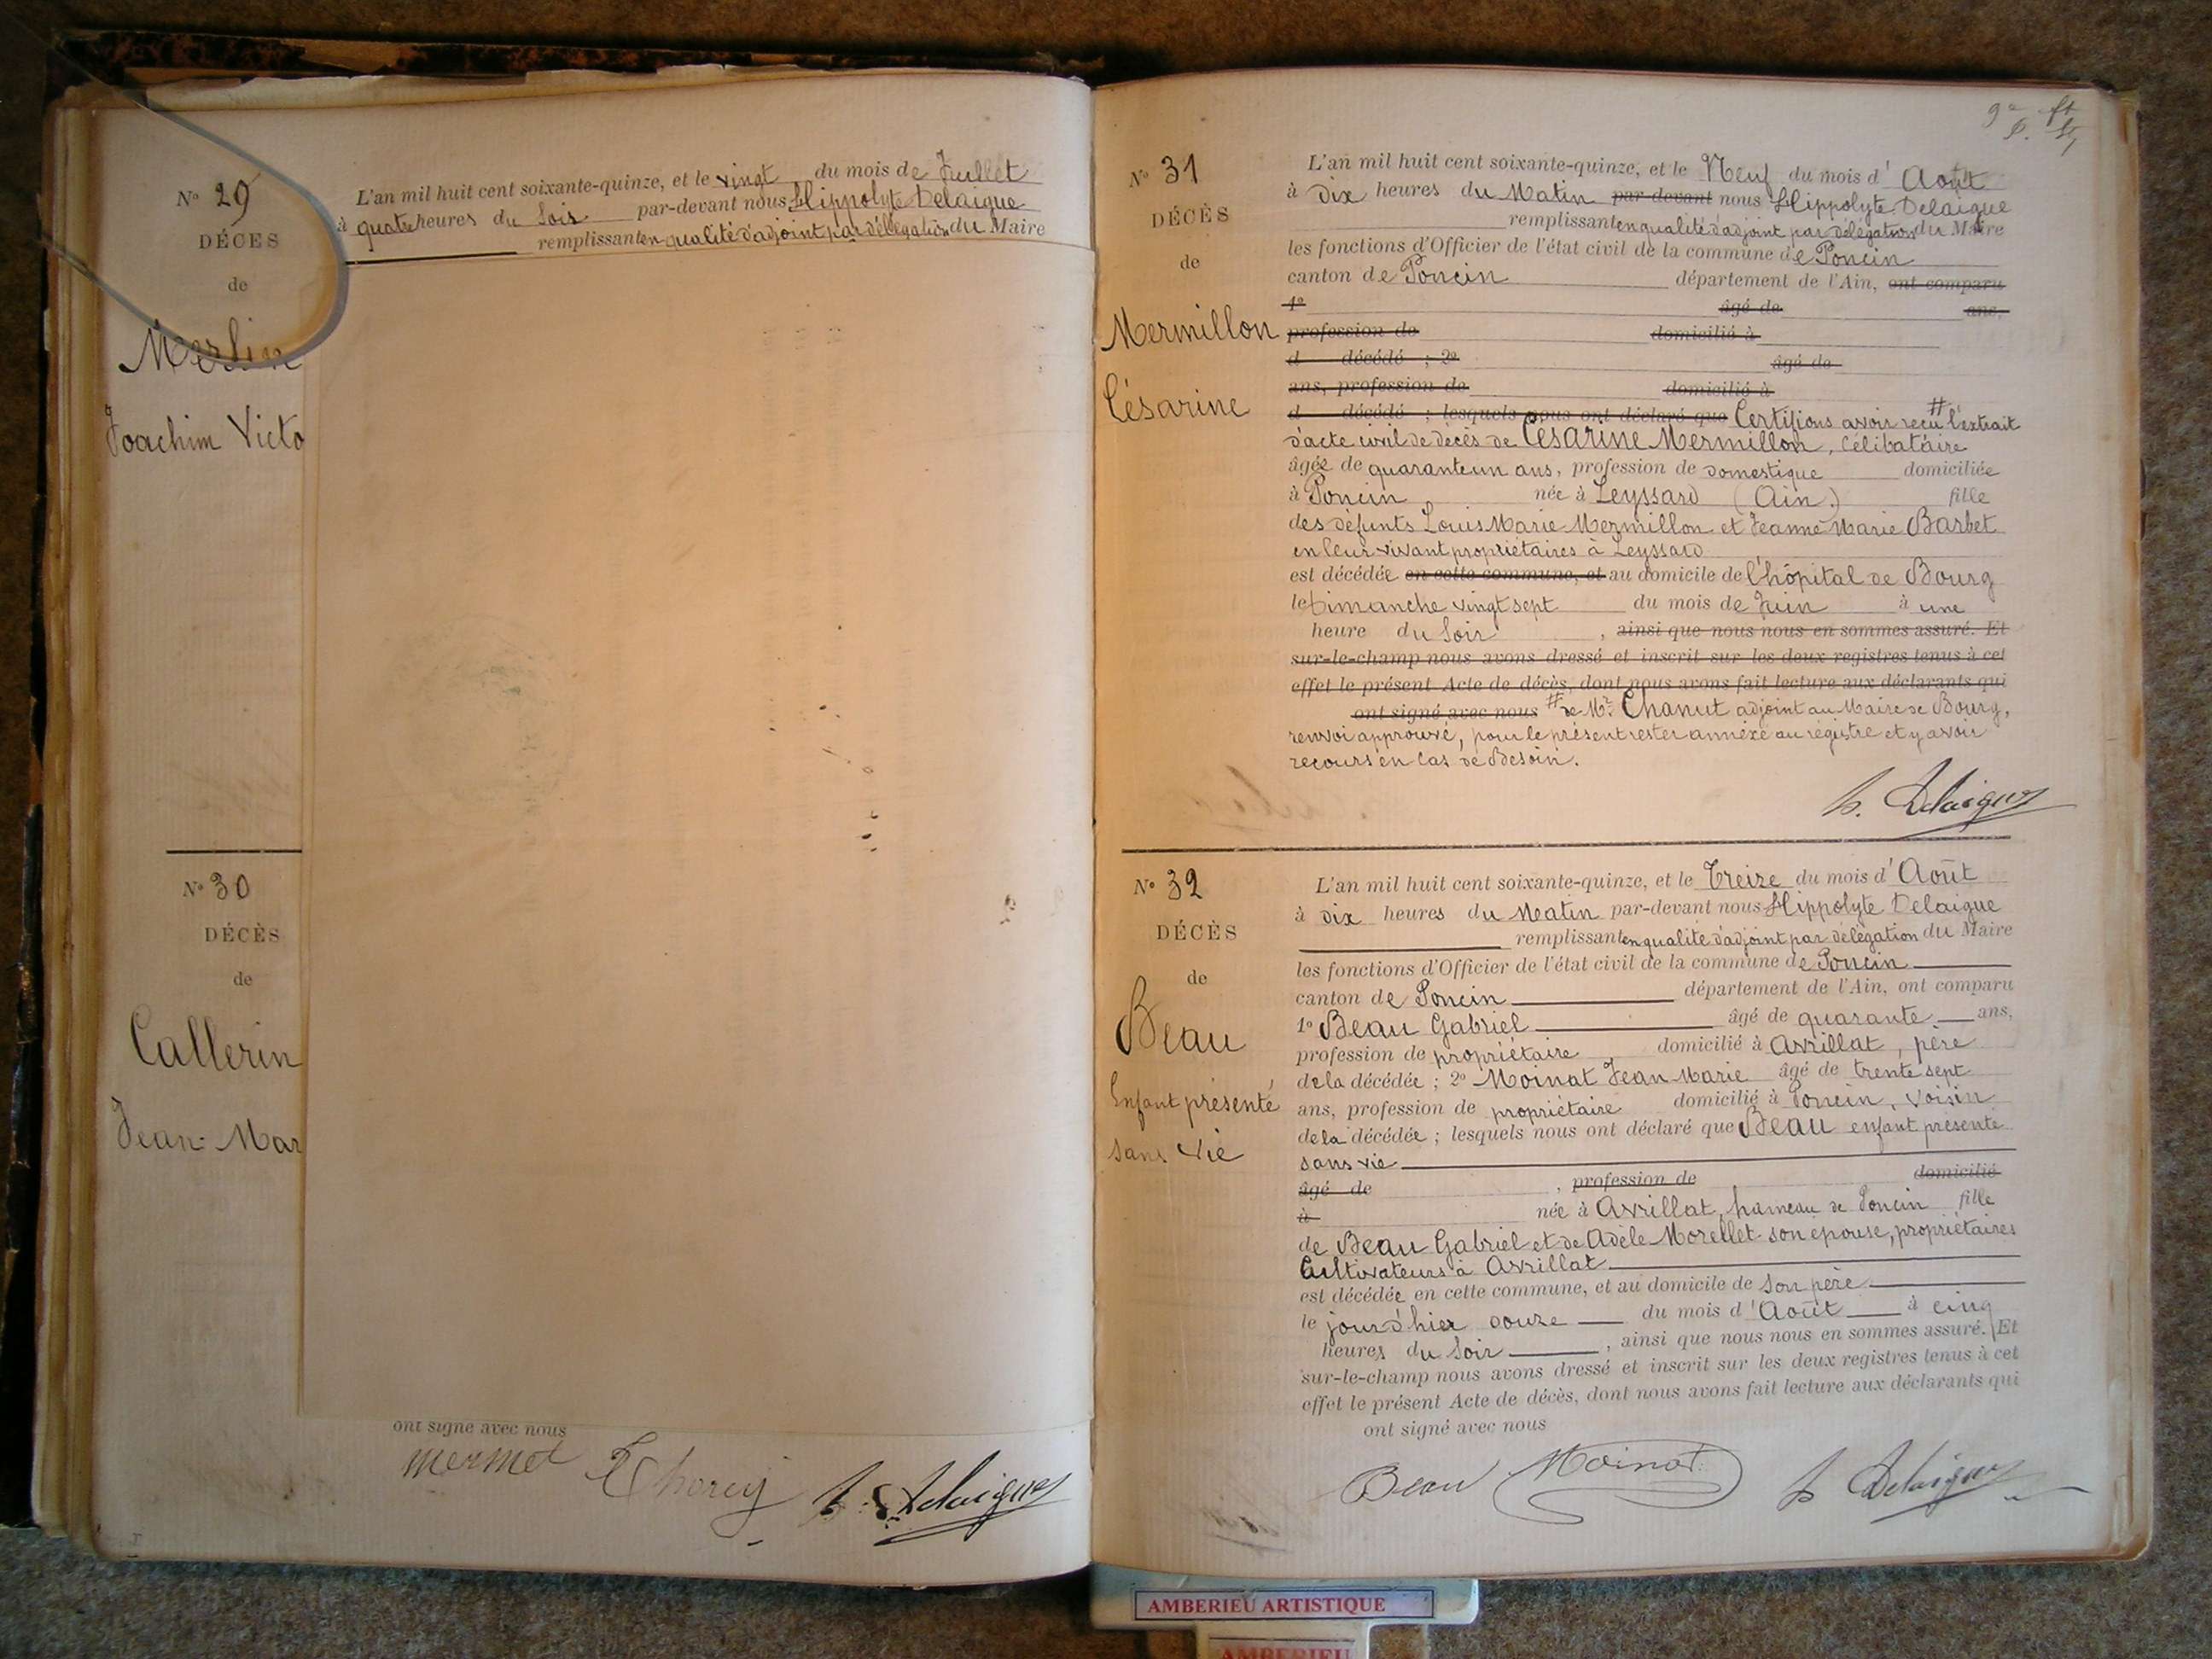 N° 29
DÉCES
de
Merlin
Joachim Victo
L'an mil huit cent soixante-quinze, et le vingt du mois de Juillet
à quatre heures du Soir par-devant nous Hippolyte Delaigue
remplissant en qualité d'adjoint par délégation du Maire
N° 30
DÉCÈS
de
Callerin
Jean-Mar
ont signé avec nous
Mermet Thoray h. Delaigue
N° 31
DÉCÈS
de
Mermillon
Césarine
L'an mil huit cent soixante-quinze, et le Neuf du mois d'Août
à Dix heures du Matin par-devant nous Hippolyte Delaigue
remplissant en qualité d'adjoint par délégation du Maire
les fonctions d'Officier de l'état civil de la commune de Poncin
canton de Poncin département de l'Ain, ont comparu
1° âgé de ans,
profession de domicilié à
d décédé ; 2° âgé de
ans, profession de domicilié à
d décédé ; lesquels nous ont déclaré que Certifions avoir reçu # l'extrait
d'acte civil de décès de Césarine Mermillon, célibataire
âgée de quarante un ans, profession de domestique domiciliée
à Poncin née à Leyssard (Ain.) fille
des défunts Louis Marie Mermillon et Jeanne Marie Barbet
en leur vivant propriétaires à Leyssard
est décédée en cette commune, et au domicile de l'hôpital de Bourg
le Dimanche vingt sept du mois de Juin à une
heure du Soir, ainsi que nous nous en sommes assuré. Et
sur-le-champ nous avons dressé et inscrit sur les deux registres tenus à cet
effet le présent Acte de décès, dont nous avons fait lecture aux déclarants qui
ont signé avec nous # de Mr Chanut adjoint au Maire de Bourg,
renvoi approuvé, pour le présent rester annexé au régistre et y avoir
recours en Cas de Besoin.
h. Delaigue
N° 32
DÉCÈS
de
Beau
Enfant présenté
sans vie
L'an mil huit cent soixante-quinze, et le Treize du mois d'Août
à dix heures du Matin par-devant nous Hippolyte Delaigue
remplissant en qualité d'adjoint par délégation du Maire
les fonctions d'Officier de l'état civil de la commune de Poncin
canton de Poncin département de l'Ain, ont comparu
1° Beau Gabriel âgé de quarante ans,
profession de propriétaire domicilié à Avrillat, père
de la décédée ; 2° Moinat Jean Marie âgé de trente sept
ans, profession de propriétaire domicilié à Poncin, voisin
de la décédée ; lesquels nous ont déclaré que Beau enfant présenté
sans vie
âgé de , profession de domicilié
à née à Avrillat, hameau de Poncin fille
de Beau Gabriel et de Adèle Morellet son épouse, propriétaires
Cultivateurs à Avrillat
est décédée en cette commune, et au domicile de son père
le jour d'hier douze du mois d'Août à cinq
heures du Soir , ainsi que nous nous en sommes assuré. Et
sur-le-champ nous avons dressé et inscrit sur les deux registres tenus à cet
effet le présent Acte de décès, dont nous avons fait lecture aux déclarants qui
ont signé avec nous
Beau Moinat h Delaigue
AMBERIEU ARTISTIQUE
AMBERIEU